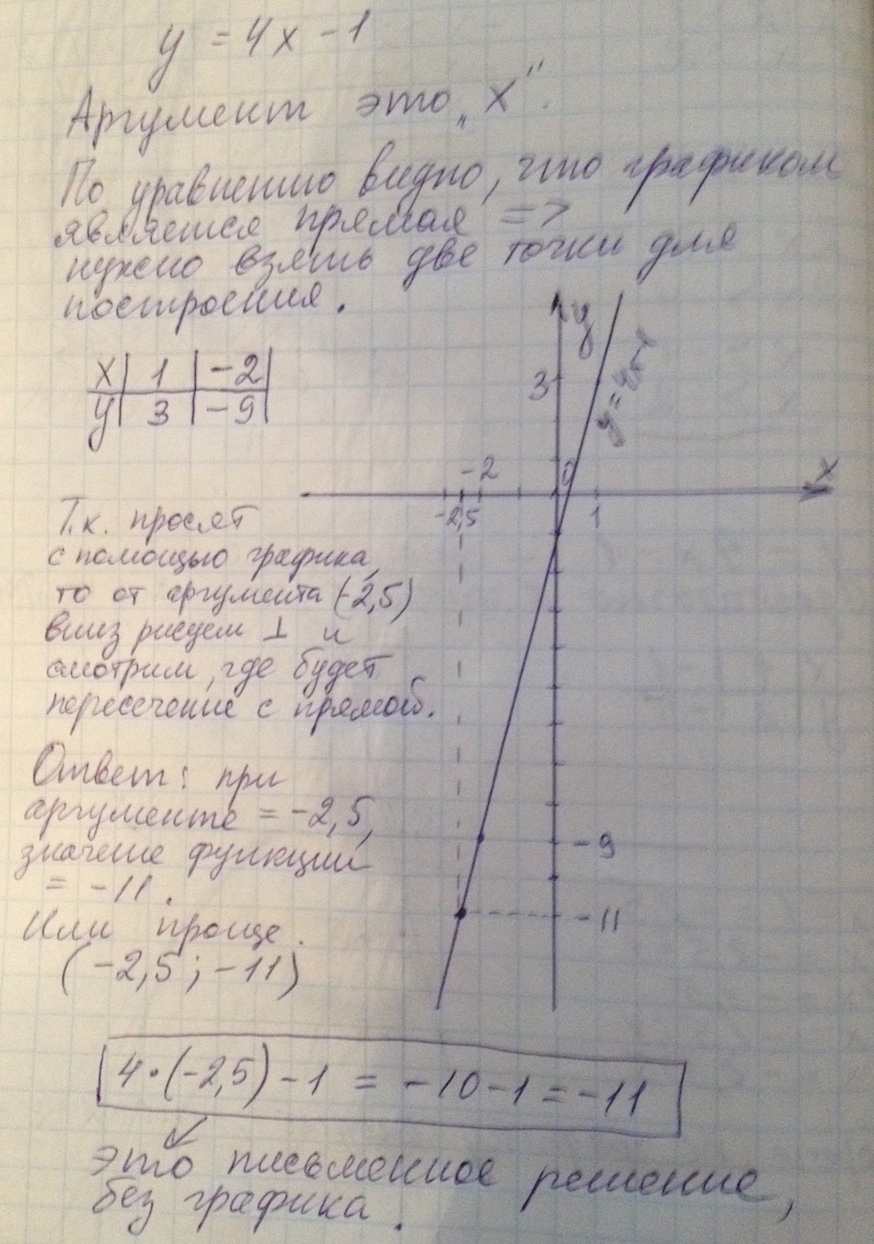 y = 4x - 1
Аргумент это „x".
По уравнению видно, что графиком
является прямая =>
нужно взять две точки для
построения.
x | 1 | -2 |
y | 3 | -9 |
y
y = 4x-1
3
-2
0
x
-2,5
1
Т.к. просят
с помощью графика,
то от аргумента (-2,5)
вниз рисуем ⊥ и
смотрим, где будет
пересечение с прямой.
-9
-11
Ответ: при
аргументе = -2,5,
значение функции
= -11.
Или проще.
(-2,5 ; -11)
4·(-2,5) - 1 = -10 - 1 = -11
это письменное решение,
без графика.